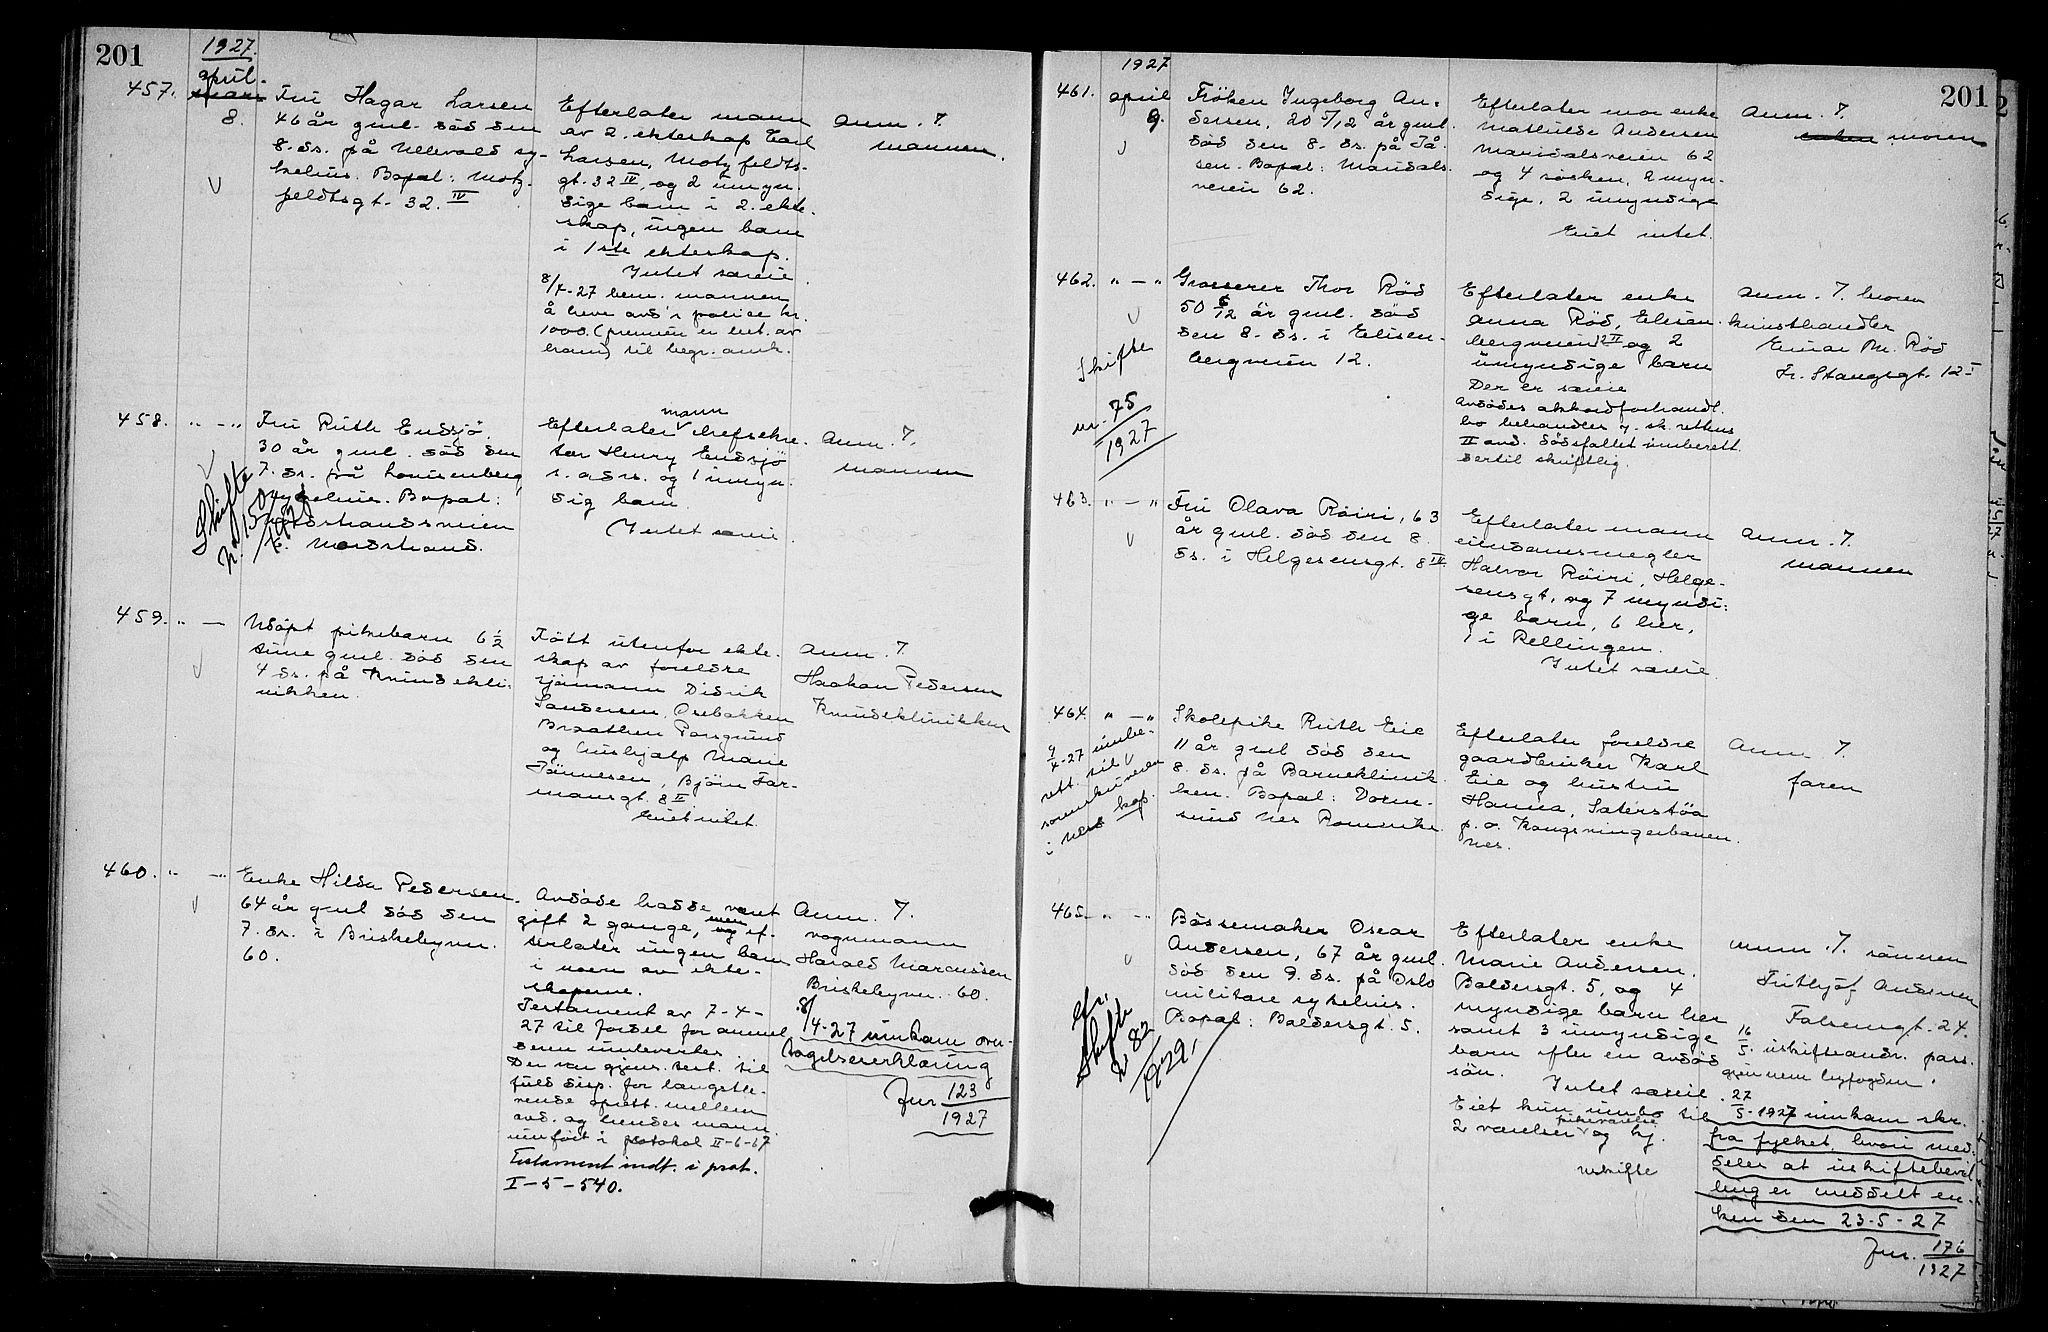 201
1927.
april.
457.
8.
Fru Hagar Larsen
46 år gml. död den
8. ds. på Ullevold sy-
kehus. Bopæl: Motz-
feldtsgt. 32. IV
Efterlater mann
av 2. ekteskap Carl
Larsen, Motzfeldts-
gt. 32 IV, og 2 umyn-
dige barn i 2. ekte-
skap, ingen barn
i 1ste ekteskap.
Intet særeie.
8/4-27 bem. mannen
å heve avd's police kr.
1000. (premien er bet. av
ham) til begr. omk.
Anm. 7.
mannen.
458. " — "
Fru Ruth Endsjö.
30 år gml. död den
7. ds. på Louisenberg
sykehus. Bopæl:
Nordstrandsveien
Nordstrand.
Skifte
n° 150
Efterlater mann chefsekre-
tær Henry Endsjö
s. adrs. og 1 umyn-
dig barn.
Intet særeie.
Anm. 7.
mannen
459. " —
Udöpt pikebarn 6 1/2
time gml. död den
4 ds. på Kvindekli-
nikken.
Född utenfor ekte-
skap av foreldre
sjömann Didrik
Sandersen, Osebakken
Braathen Porsgrund
og hushjælp Marie
Tönnesen, Björn Far-
mansgt. 8 II
Eiet intet.
Anm. 7.
Haakon Pedersen
Kvindeklinikken
460. " — "
Enke Hilda Pedersen.
64 år gml död den
7. ds. i Briskebyvn.
60.
Avdöde hadde været
gift 2 gange, men ef-
terlater ingen barn
i noen av ekte-
skapene.
Testament av 7-4-
27 til fordel for anmel-
deren innlevertes.
Der var gjens. test. til
fuld disp. for længstle-
vende oprett. mellem
avd. og hendes mann
innfört i protokol II-6-67
Testament indt. i prot.
I-5-540.
Anm. 7.
vognmann
Harald Marcussen
Briskebyvn. 60.
8/4-27 innkom over-
tagelseserklæring
Jnr 123/1927
1927
201
461. april
9.
Fröken Ingeborg An-
dersen, 20 5/12 år gml.
död den 8. ds. på Få-
sen. Bopæl: Maridals-
veien 62.
Efterlater mor enke
Mathilde Andersen
Maridalsveien 62
og 4 sösken, 2 myn-
dige, 2 umyndige
Eiet intet.
Anm. 7.
moren
462. " — "
Grosserer Thor Röd
50 6/12 år gml. död
den 8. ds. i Eilsen-
bergveien 12.
Skifte
nr. 75/1927
Efterlater enke
Anna Röd, Eilsen-
bergveien 12 II og 2
umyndige barn
Der er særeie
Avdödes akkordforhandl.
bo behandles v. sk. rettens
II avd. Dödsfallet innberett.
dertil skriftlig.
Anm. 7. broren
kunsthandler
Einar M. Röd
Fr. Stangsgt. 12 I
463. " — "
Fru Olava Röiri, 63
år gml. död den 8.
ds. i Helgesensgt. 8 IV.
Efterlater mann
eiendomsmegler
Halvor Röiri, Helge-
sensgt, og 7 myndi-
ge barn, 6 her,
1 i Rellingen.
Intet særeie.
Anm. 7.
mannen
464. " — "
9/4-27 innbe-
rett. til
sorenskriveren
i Nes
Skolepike Ruth Eie
11 år gml död den
8. ds. på Barneklinik-
ken. Bopæl: Dorm-
sund Nes Romerike.
Efterlater foreldre
gaardbruker Karl
Eie og hustru
Hanna, Saterstöa
p. o. Kongsvingerbanen
Nes.
Anm. 7.
faren
465. " — "
Bössemaker Oscar
Andersen, 67 år gml.
död den 9. ds. på Oslo
militære sykehus.
Bopæl: Baldersgt. 5.
Cfr.
Skifte
n 82
1929.
Efterlater enke
Marie Andersen.
Baldersgt. 5, og 4
myndige barn her
samt 3 umyndige
barn efter en avdöd
sön.
Intet særeie.
Eiet kun innbo til
2 værelser pikeværelse og kj.
uskifte
Anm. 7. sönnen
Frithjof Andersen
Falsensgt. 24.
16/5. uskifteandr. pass.
gjennem byfogden.
27/5-1927 innkom skr.
fra fylket hvori med-
deles at uskiftebevil-
ling er meddelt en-
ken den 23-5-27
Jnr. 176/1927